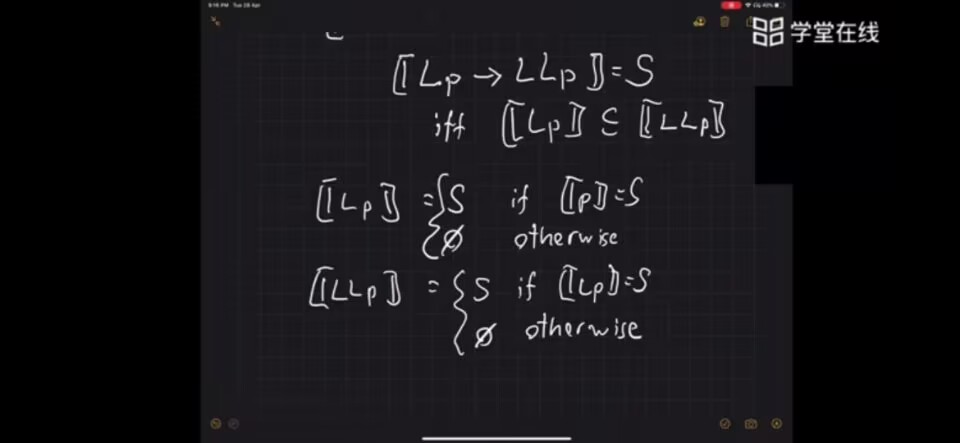 9:16 PM Tue 28 Apr
学堂在线
⟦Lp → LLp⟧=S
iff ⟦Lp⟧ ⊆ ⟦LLp⟧
⟦Lp⟧ = { S if ⟦p⟧=S
∅ otherwise
⟦LLp⟧ = { S if ⟦Lp⟧=S
∅ otherwise